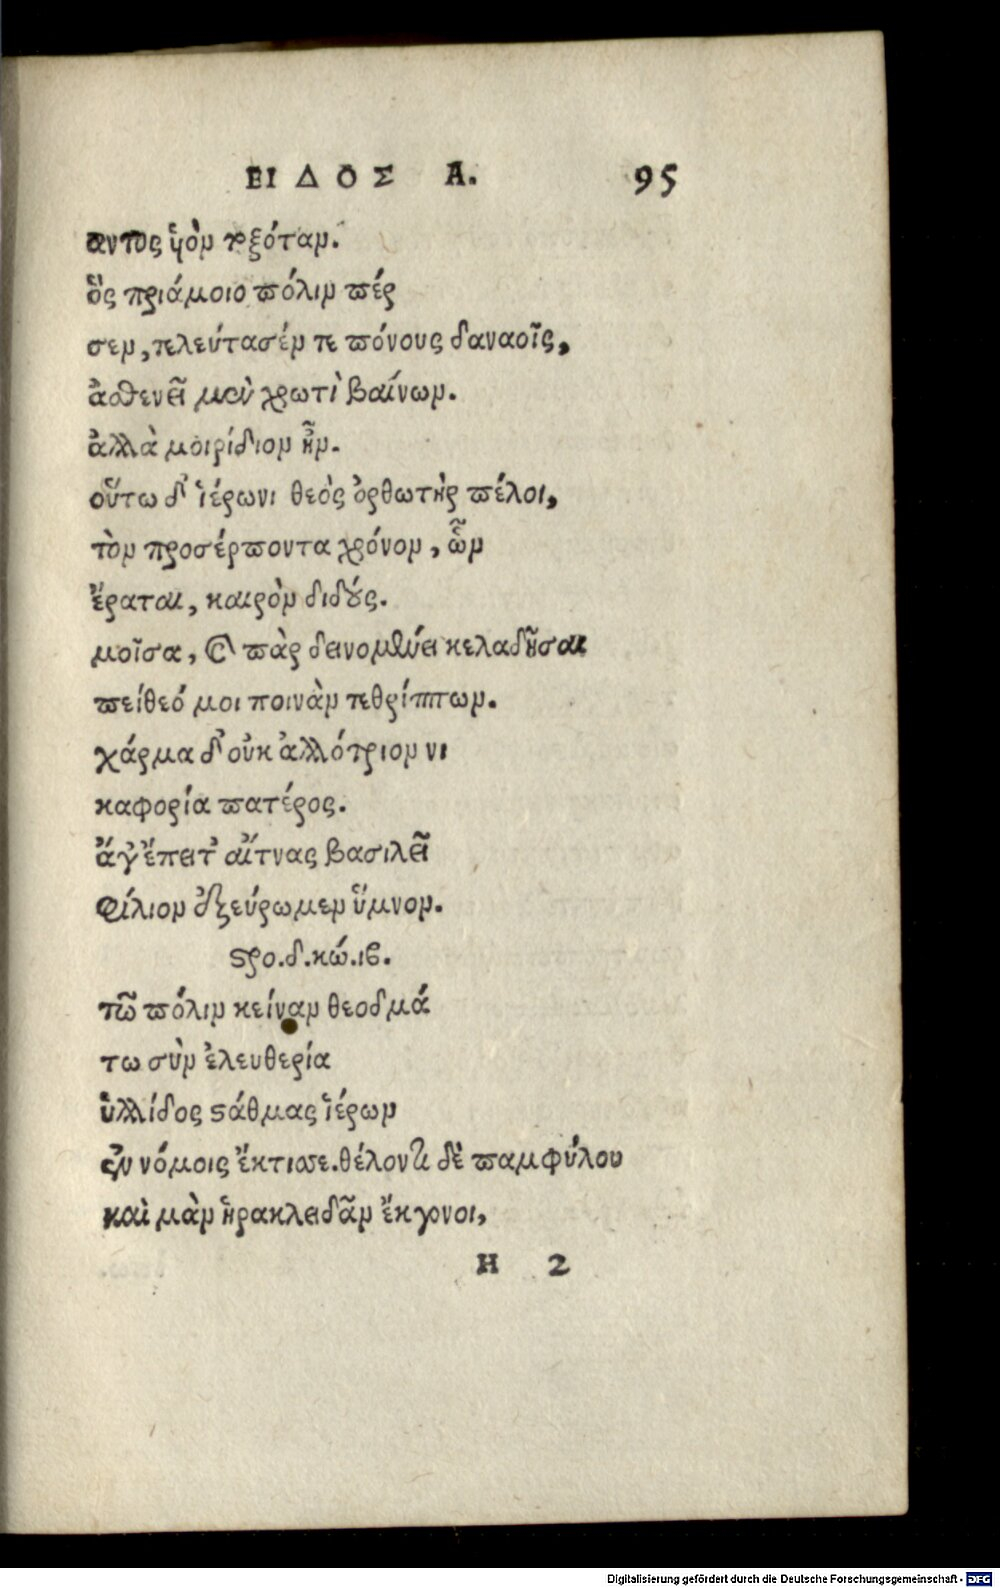 ΕΙΔΟΣ Α. 95
αντος ὑὸν τοξόταν.
ὃς πριάμοιο πόλιν πέρ
σεν, τελεύτασέν τε πόνους δαναοῖς,
ἀσθενεῖ μὲν χρωτὶ βαίνων.
ἀλλὰ μοιρίδιον ἦν.
οὕτω δ' ἱέρωνι θεὸς ὀρθωτὴρ πέλοι,
τὸν προσέρποντα χρόνον, ὧν
ἔραται, καιρὸν διδούς.
μοῖσα, καὶ πὰρ δεινομένει κελαδῆσαι
πείθεό μοι ποινὰν τεθρίππων.
χάρμα δ' οὐκ ἀλλότριον νι
καφορία πατέρος.
ἄγ' ἔπειτ' αἴτνας βασιλεῖ
φίλιον ἐξεύρωμεν ὕμνον.
στρο.δ.κώ.ιβ.
τῷ πόλιν κείναν θεοδμά
τω σὺν ἐλευθερία
ὑλλίδος στάθμας ἱέρων
ἐν νόμοις ἔκτισε. θέλοντι δὲ παμφύλου
καὶ μὰν ἡρακλειδᾶν ἔκγονοι,
Η 2
Digitalisierung gefördert durch die Deutsche Forschungsgemeinschaft - DFG